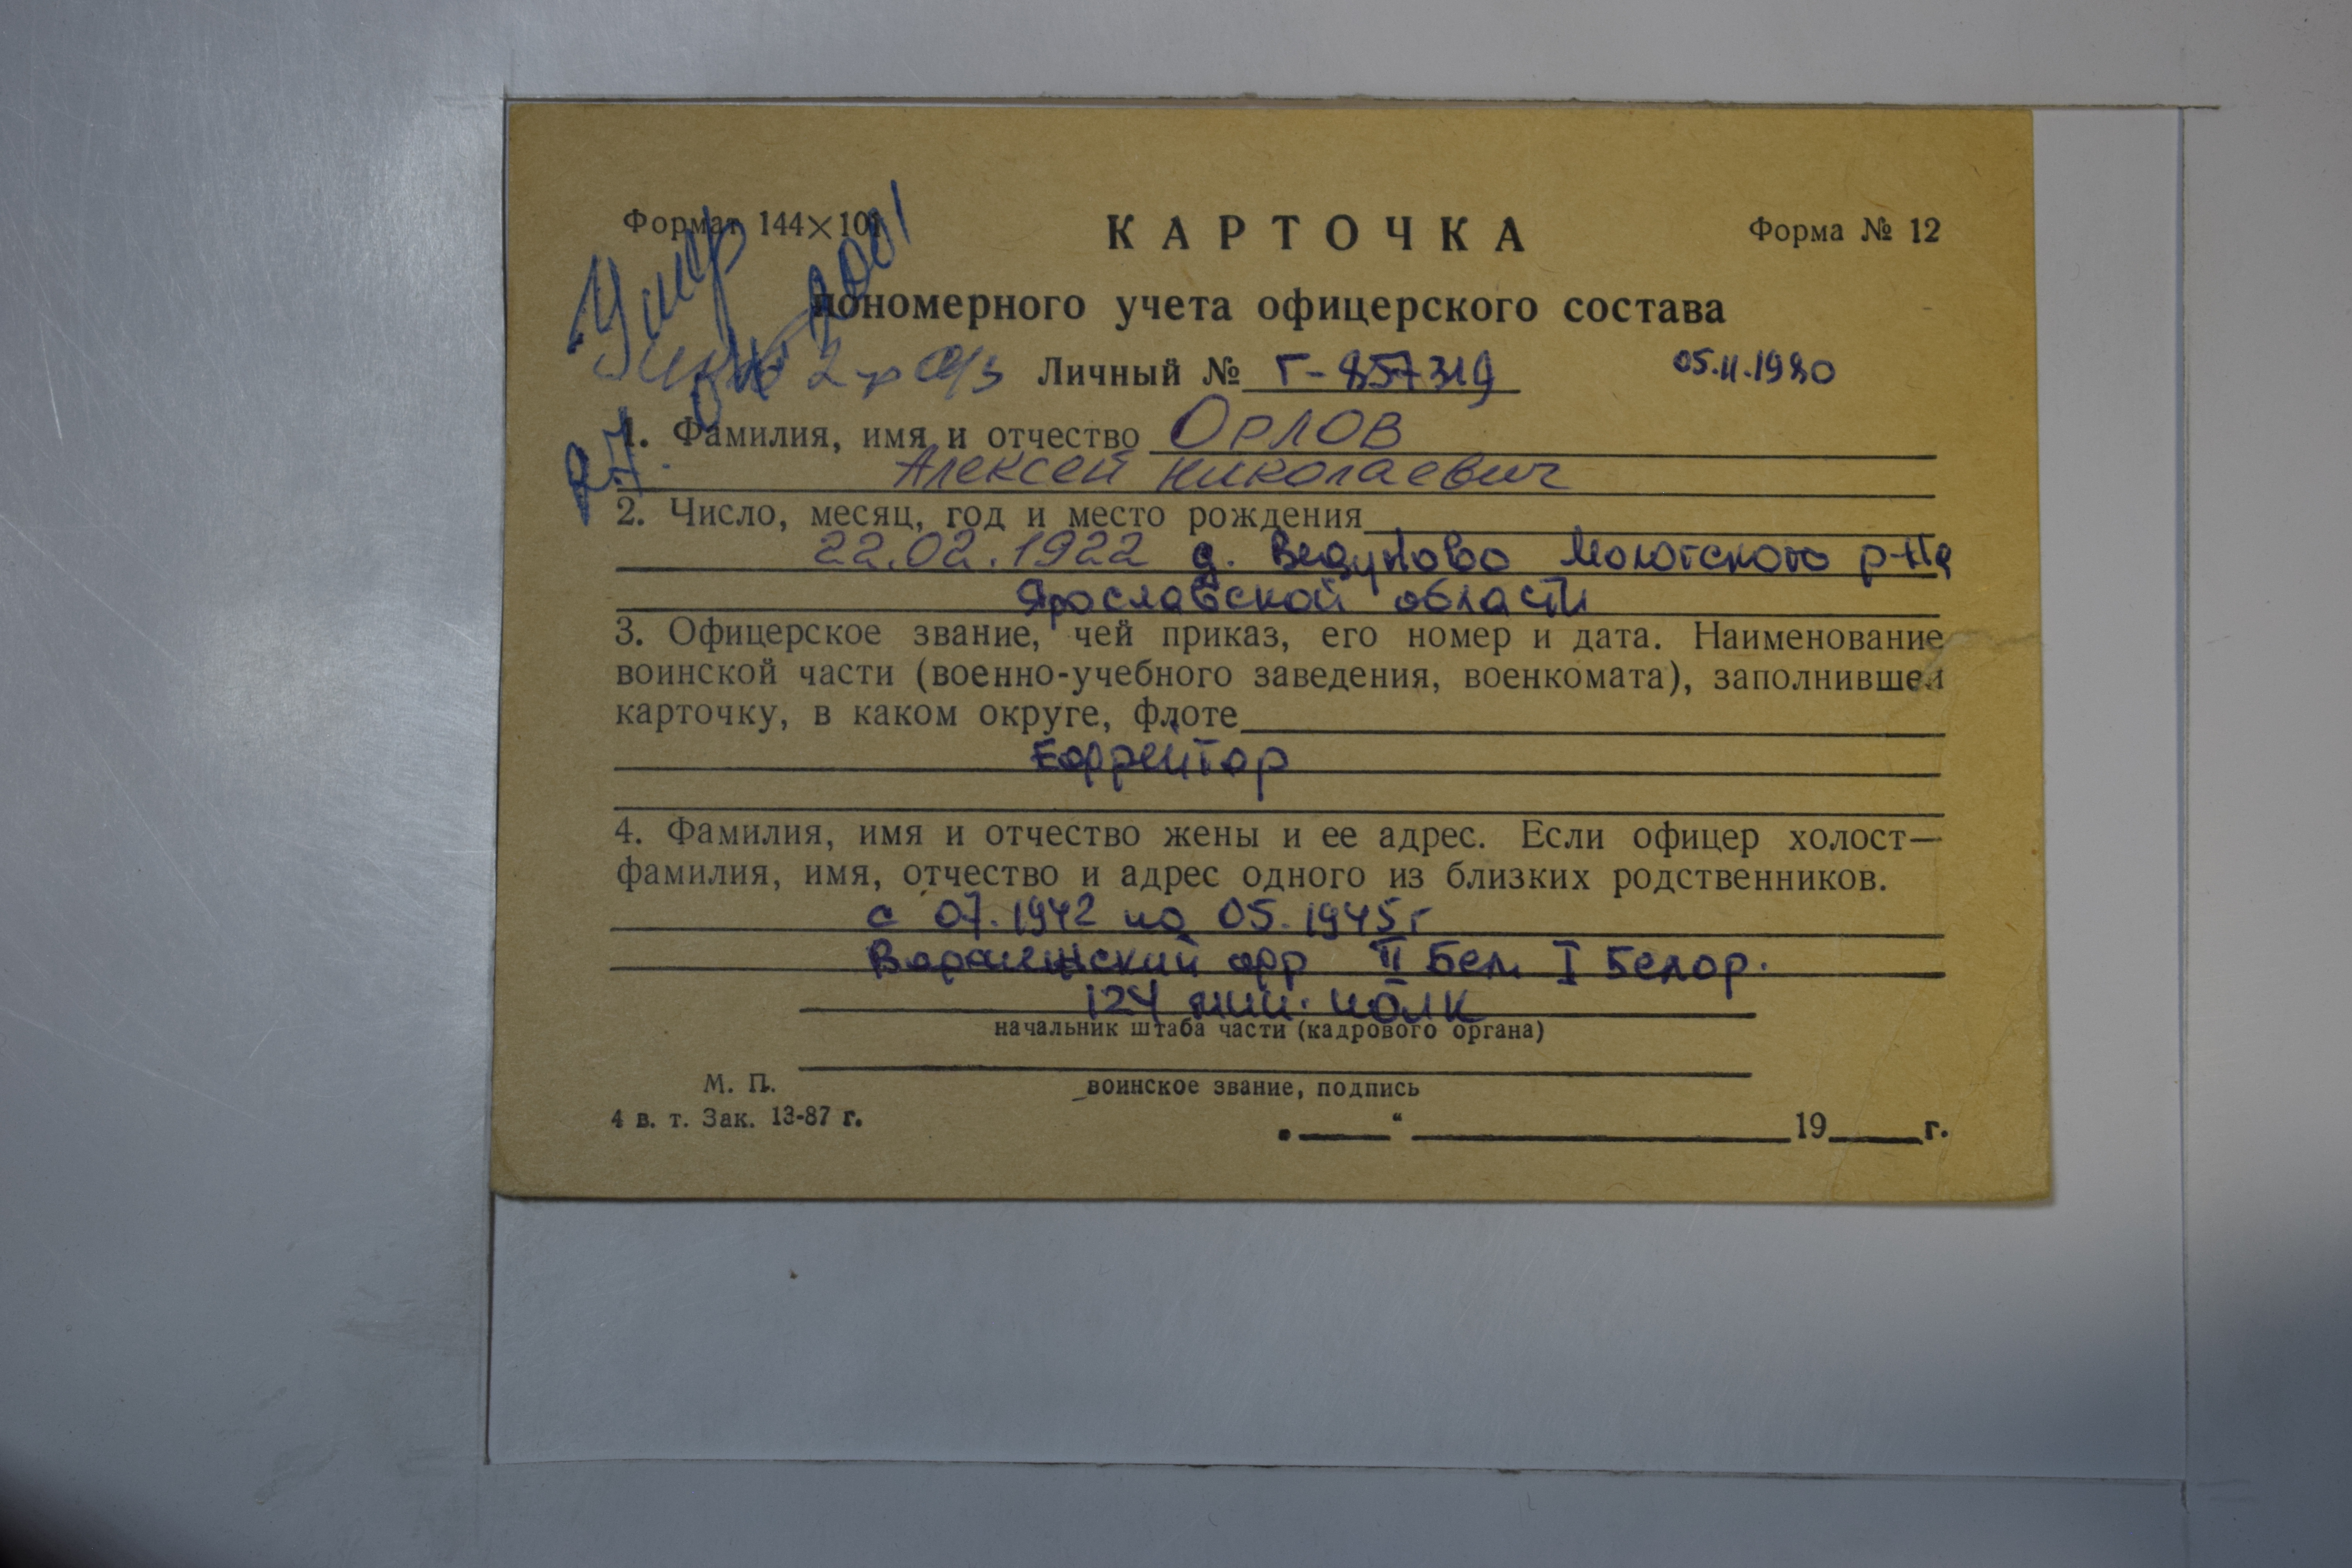 Формат 144×101
КАРТОЧКА
Форма № 12
Умер
2001
пономерного учета офицерского состава
Личный № Г-857319
05.11.1980
1. Фамилия, имя и отчество Орлов
Алексей Николаевич
2. Число, месяц, год и место рождения
22.02.1922 д. Ведуново Мологского р-на
Ярославской области
3. Офицерское звание, чей приказ, его номер и дата. Наименование
воинской части (военно-учебного заведения, военкомата), заполнившей
карточку, в каком округе, флоте
Ефрейтор
4. Фамилия, имя и отчество жены и ее адрес. Если офицер холост—
фамилия, имя, отчество и адрес одного из близких родственников.
с 07.1942 по 05.1945 г
Воронежский фр II Бел. I Белор.
124 мин. полк
начальник штаба части (кадрового органа)
М. П.
воинское звание, подпись
4 в. т. Зак. 13-87 г.
„ “ 19 г.